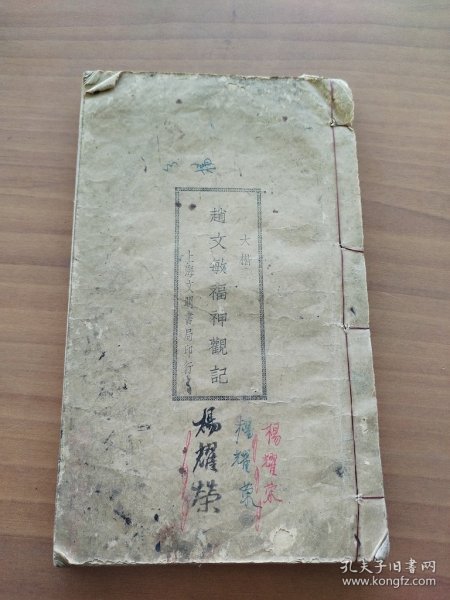 楊
大楷
趙文敏福神觀記
上海文瑞書局印行
楊耀榮
耀耀榮
楊耀榮
孔夫子旧书网
www.kongfz.com